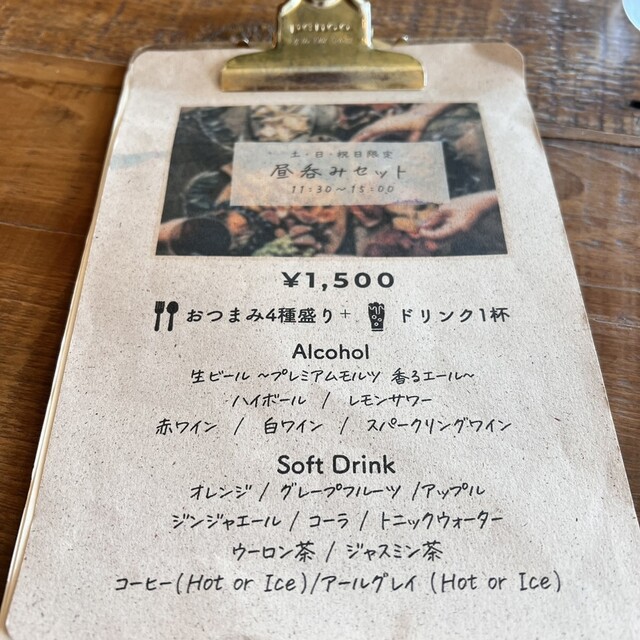 土・日・祝日限定
昼呑みセット
11:30～15:00
¥1,500
おつまみ4種盛り + ドリンク1杯
Alcohol
生ビール ～プレミアムモルツ 香るエール～
ハイボール / レモンサワー
赤ワイン / 白ワイン / スパークリングワイン
Soft Drink
オレンジ / グレープフルーツ /アップル
ジンジャエール / コーラ / トニックウォーター
ウーロン茶 / ジャスミン茶
コーヒー(Hot or Ice)/アールグレイ (Hot or Ice)